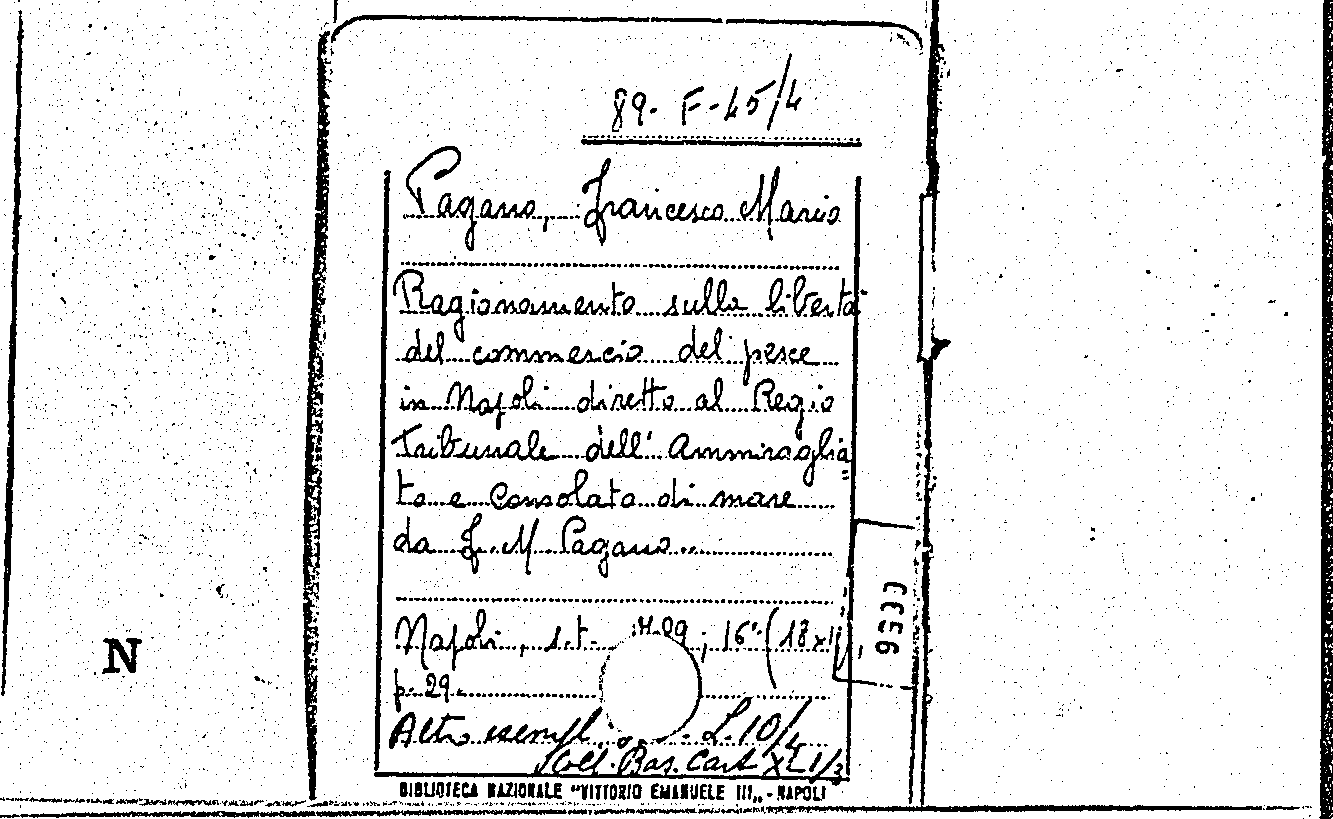 89. F-45/4
Pagano, Francesco Mario
Ragionamento sulla libertà
del commercio del pesce
in Napoli diretto al Regio
Tribunale dell'Ammiraglia=
to e Consolato di mare
da F. M Pagano..
Napoli, s.t. ; 16° (18x
p. 29.
Altro esempl L.10/4
Coll. Bas. Cart XL 1/3
BIBLIOTECA NAZIONALE "VITTORIO EMANUELE III„ - NAPOLI
N